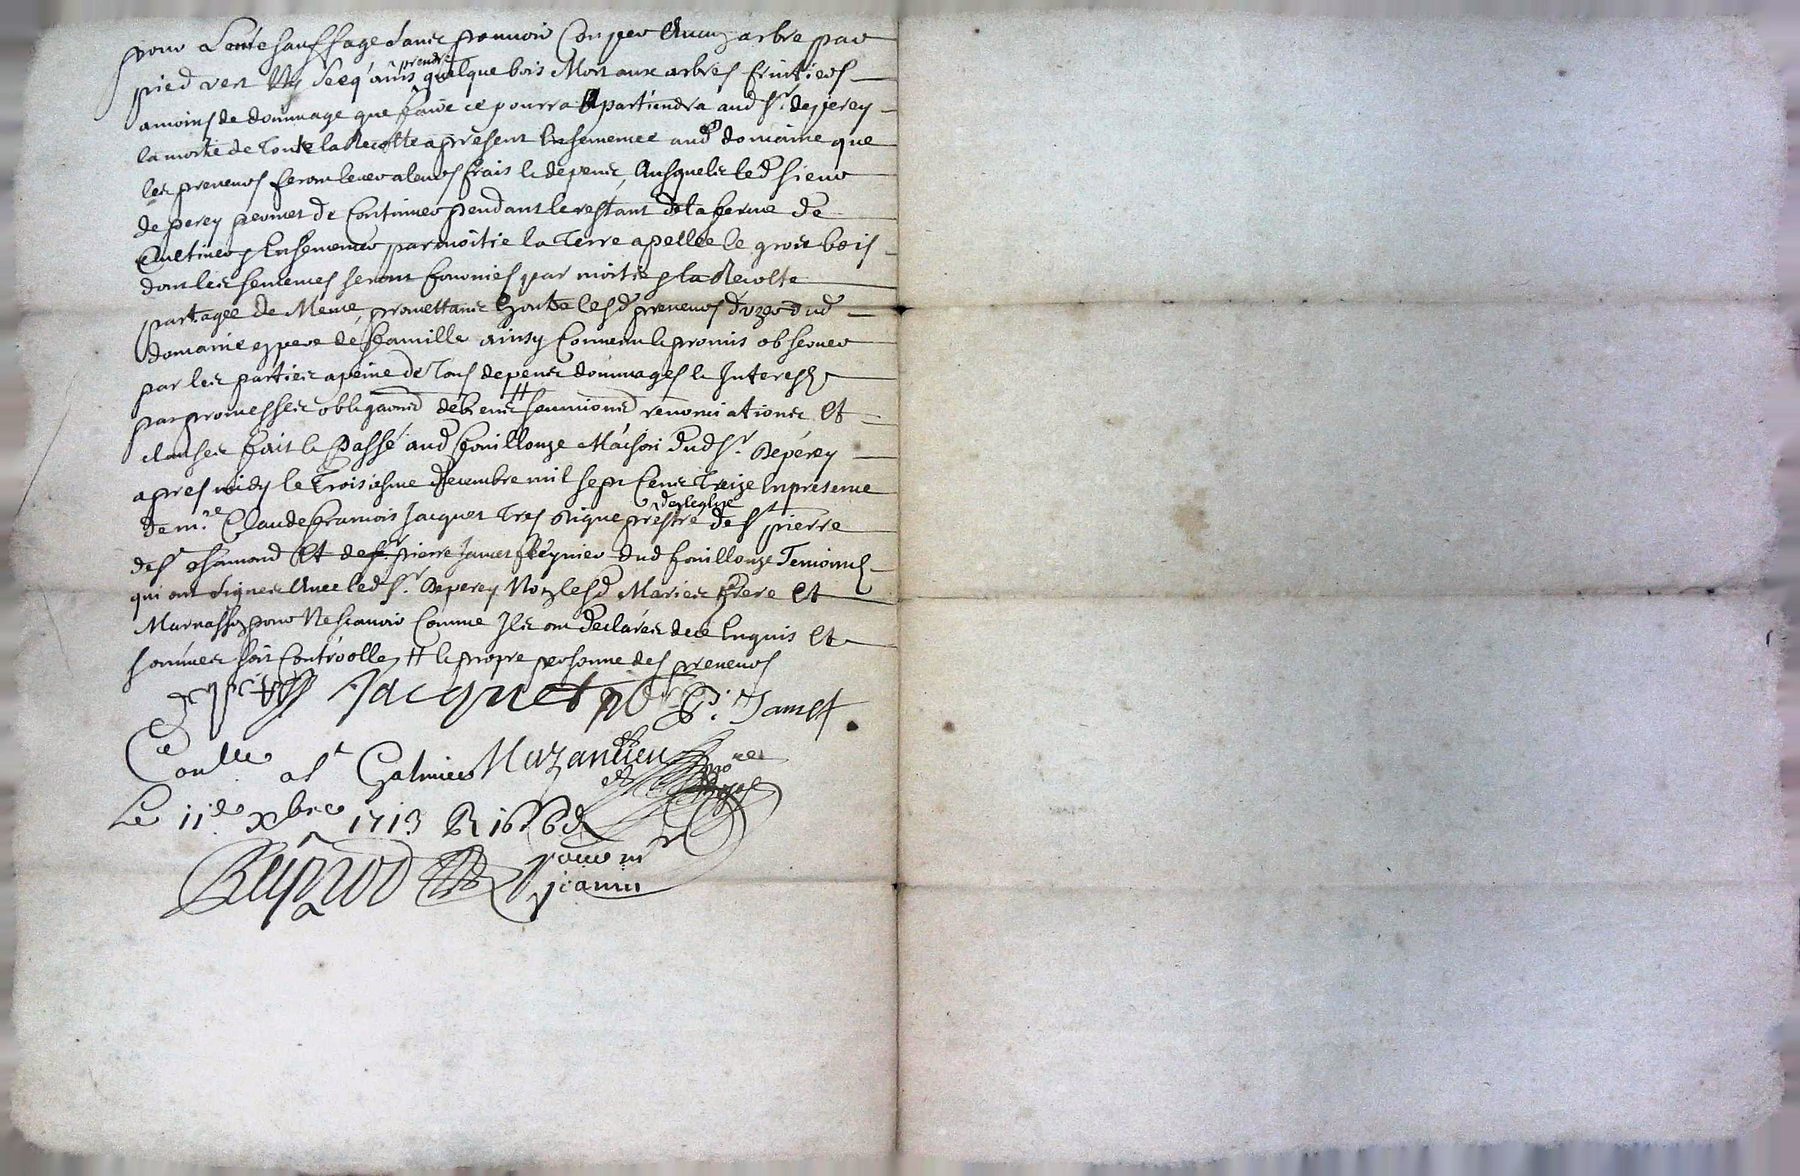 pour Leur chauffage sans pouvoir Couper Aucuns arbre par
pied vert Ny Secq ains prendre quelque bois Mort aux arbres fruitiers
a moins de dommage que faire ce pourra Apartiendra aud Sr deperey
la moitie de Toute la Recolte apresent Ensemencee aud domaine que
les preneurs feront lever a leurs frais & depens, Ausquels led Sieur
de perey permet de Continuer pendant le restant de la ferme de
Cultiver & Ensemencer par moitie la Terre apellée le gros bois
dont les semences seront fournies par moitie & la Recolte
partagée de Méme, promettans lesd preneurs d'uzer dud
domaine en pere de famille ainsy Convenu & promis observer
par les parties a peine de Tous depens dommages & Interests
par promesses obligaons de biens # soumions renonciations Et
clauses fait & Passé aud fouillouze Maison dud Sr. Deperey
apres midy le Troisiesme decembre mil sept Cens Treize En presence
de mre Claude francois Jacquet prestre de l'eglise de St pierre
de St chamond Et de pierre Janet dud fouillouze Temoins
qui ont signes Avec led Sr. Deperey Non lesd Mariés frere Et
Marnas pour Ne scavoir Comme Ils ont declarés de ce Enquis Et
sommés soit Controollé # & propre personne des preneurs
Jacquet pbr P. Janet
Conllé a St Galmier Mazandieu
Le 11e xbre 1713 R